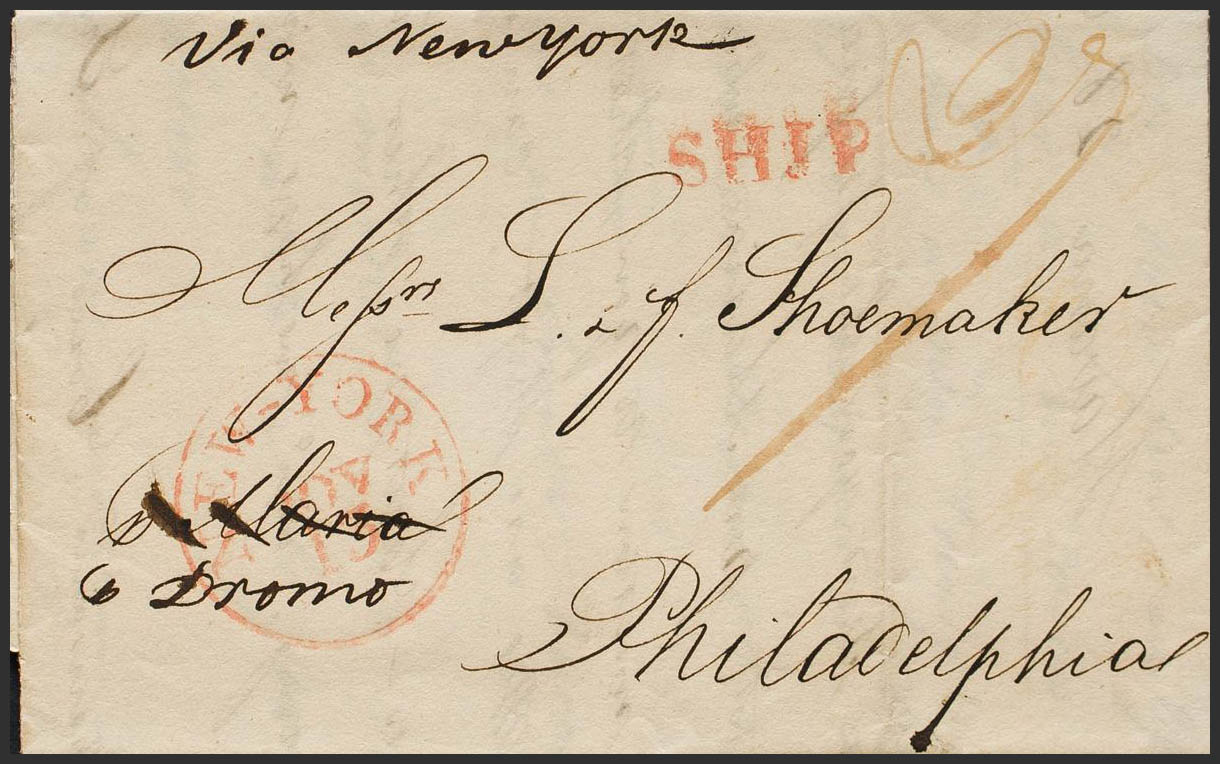 Via New York
SHIP
Messrs L. & J. Shoemaker
NEW-YORK
NOV
19
p Maria
p Dromo
Philadelphia